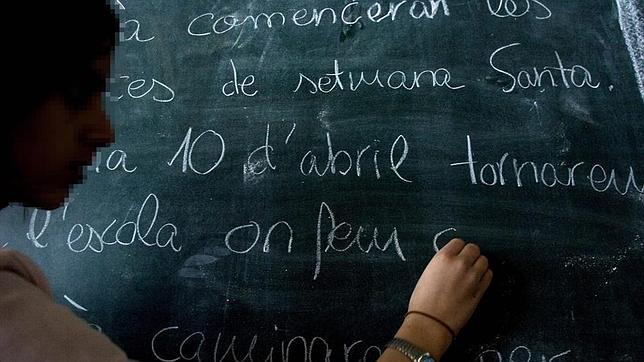 comenceran les
de setmana Santa.
10 d'abril tornareu
l'escola on feu c
caminar per